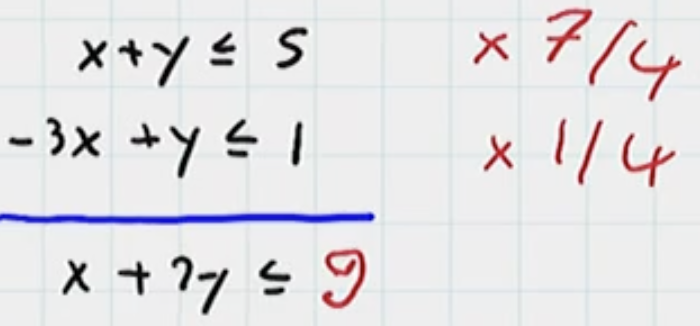 x+y ≤ 5 x 7/4
-3x +y ≤ 1 x 1/4
x + 2y ≤ 9